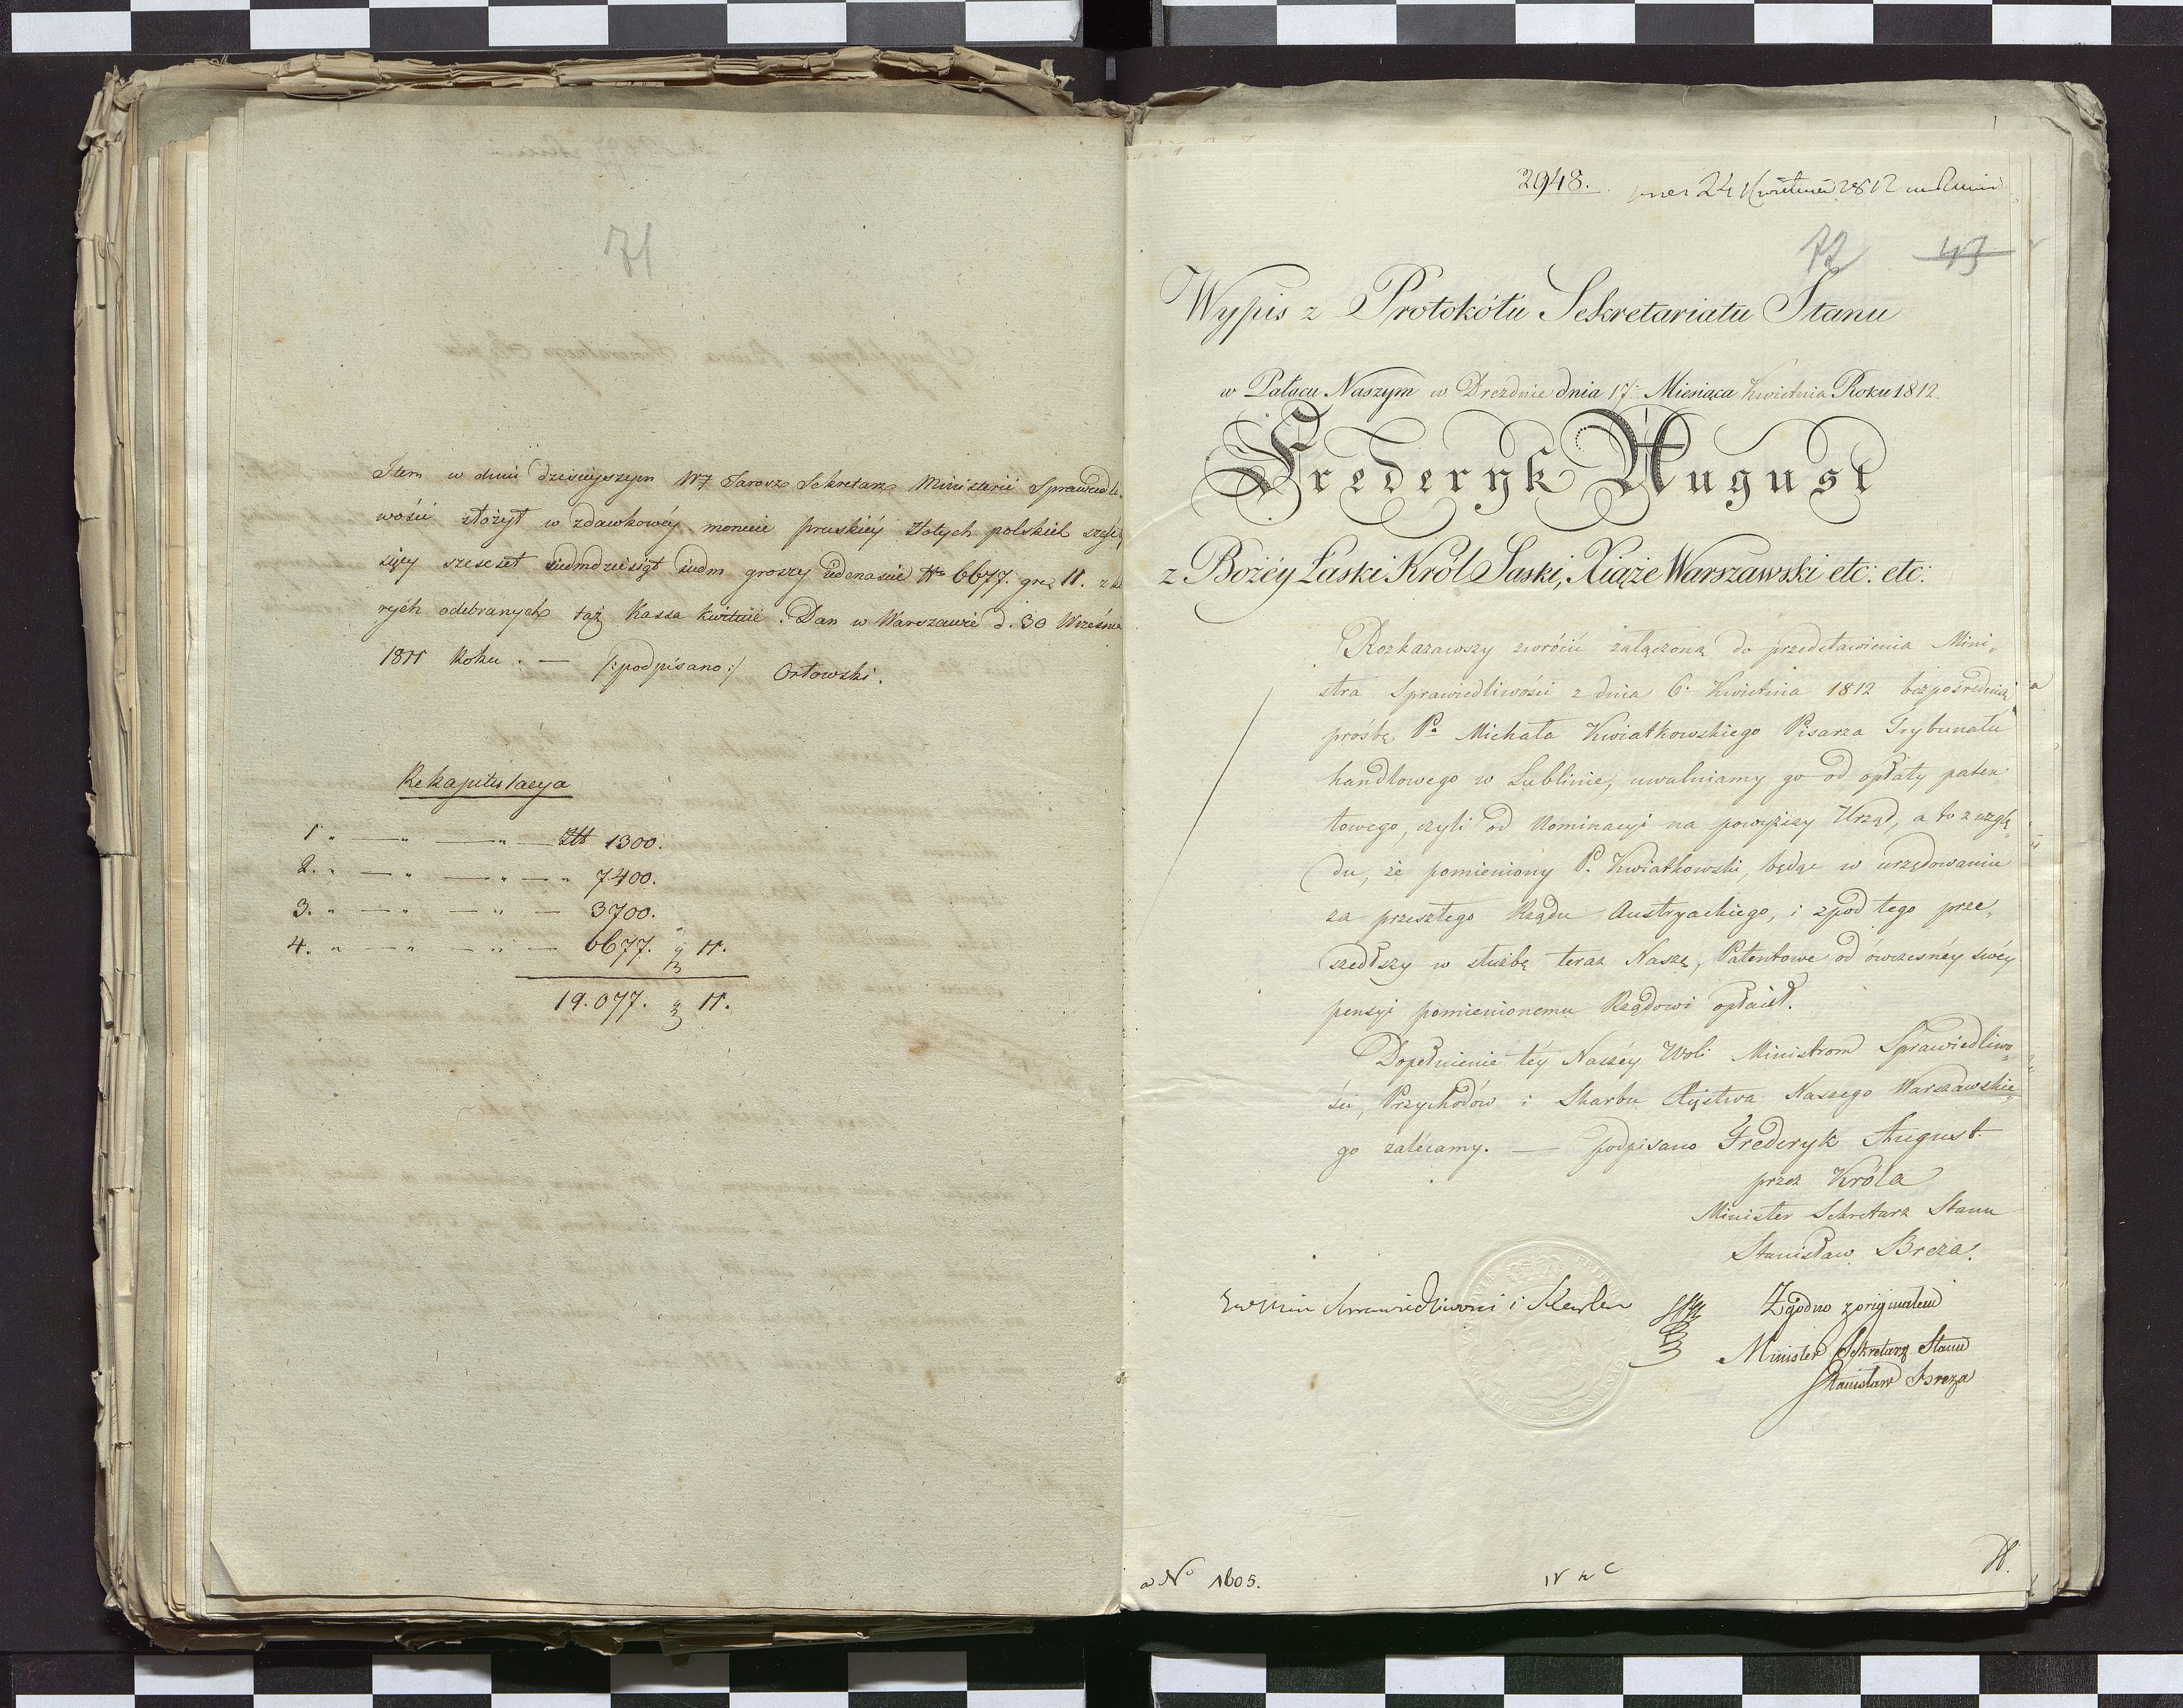 71
Item w dniu dzisieyszym WJ Tarosz Sekretarz Ministerii Sprawiedli-
wości złożył w zdawkowéy monecie pruskiéy złotych polskich sześć ty
sięcy szescset siedmdziesiąt siedm groszy iedenascie Ztt 6677. grz 11. z któ
rych odebranych taż Kassa kwituie. Dan w Warszawie d. 30 Wrześnie
1811 Roku. — /:podpisano:/ Orłowski.
Rekapitulacya
1 " — " — " — Ztt 1300.
2. " — " — " — " 7400.
3. " — " — " — 3700.
4. " — " — " — 6677. g 11.
19.077. g 11.
2948. 24 Kwietnia 1812
72 43
Wypis z Protokółu Sekretariatu Stanu
w Pałacu Naszym w Dreznie dnia 17. Miesiąca Kwietnia Roku 1812.
Frederyk August
z Bożéy Łaski Król Saski, Xiąże Warszawski etc: etc:
Rozkazawszy zwrócić załączoną do przedstawienia Mini„
stra Sprawiedliwości z dnia 6. Kwietnia 1812 bezpośrednią
prośbę Pa Michała Kwiatkowskiego Pisarza Trybunału
handlowego w Lublinie, uwalniamy go od opłaty paten„
towego, czyli od Nominacyi na powyższy Urząd, a to z wzglę„
du, że pomieniony P. Kwiatkowski, będąc w urzędowaniu
za przeszłego Rządu Austryackiego, i zpod tego prze„
szedłszy w służbę teraz Naszą, Patentowe od ówczesnéy swéy
pensyi pomienionemu Rządowi opłacił.
Dopełnienie téy Naszéy Woli Ministrom Sprawiedliwo„
ści, Przychodów i Skarbu Xięstwa Naszego Warszawskie„
go zalécamy. — podpisano Frederyk August.
przez Króla
Minister Sekretarz Stanu
Stanisław Breza.
Sprawiedliwości i Skarbu
Zgodno z originałem
Minister Sekretarz Stanu
Stanisław Breza
a No 1605.